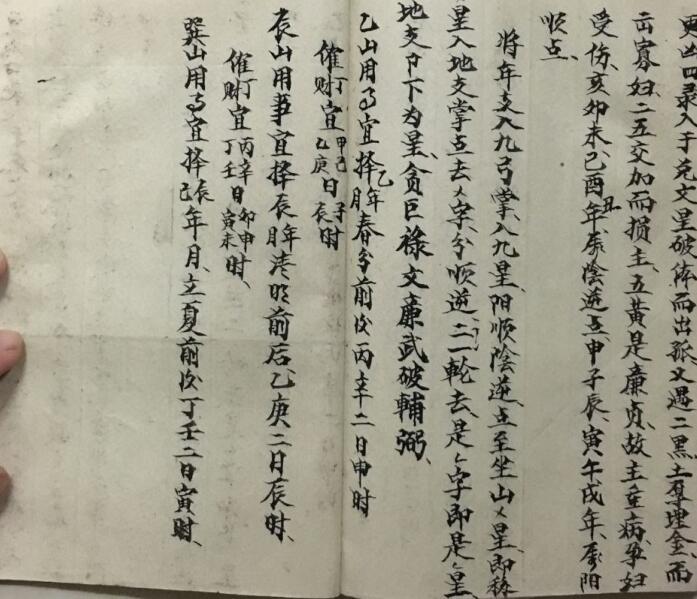 凶四录入于兑文星破体而出孤又遇二黑土厚埋金而
寡妇二五交加而损主五黄是廉贞故主重病孕妇
受伤亥卯未巳酉丑年属陰逆点申子辰寅午戌年属阳
顺点
将年支入九弓掌入九星阳顺陰逆点至坐山星即
星入地支掌点去字分顺逆一轮去是々字即是々星
地支卩下为星贪巨禄文廉武破輔弼
乙山用事宜择乙年月春分前后丙辛二日申时
催丁财宜甲己乙庚日子辰时
辰山用事宜择辰年月清明前后乙庚二日辰时
催丁财宜丙辛丁壬日卯申寅未时
巽山用事宜择辰巳年月立夏前后丁壬二日寅时